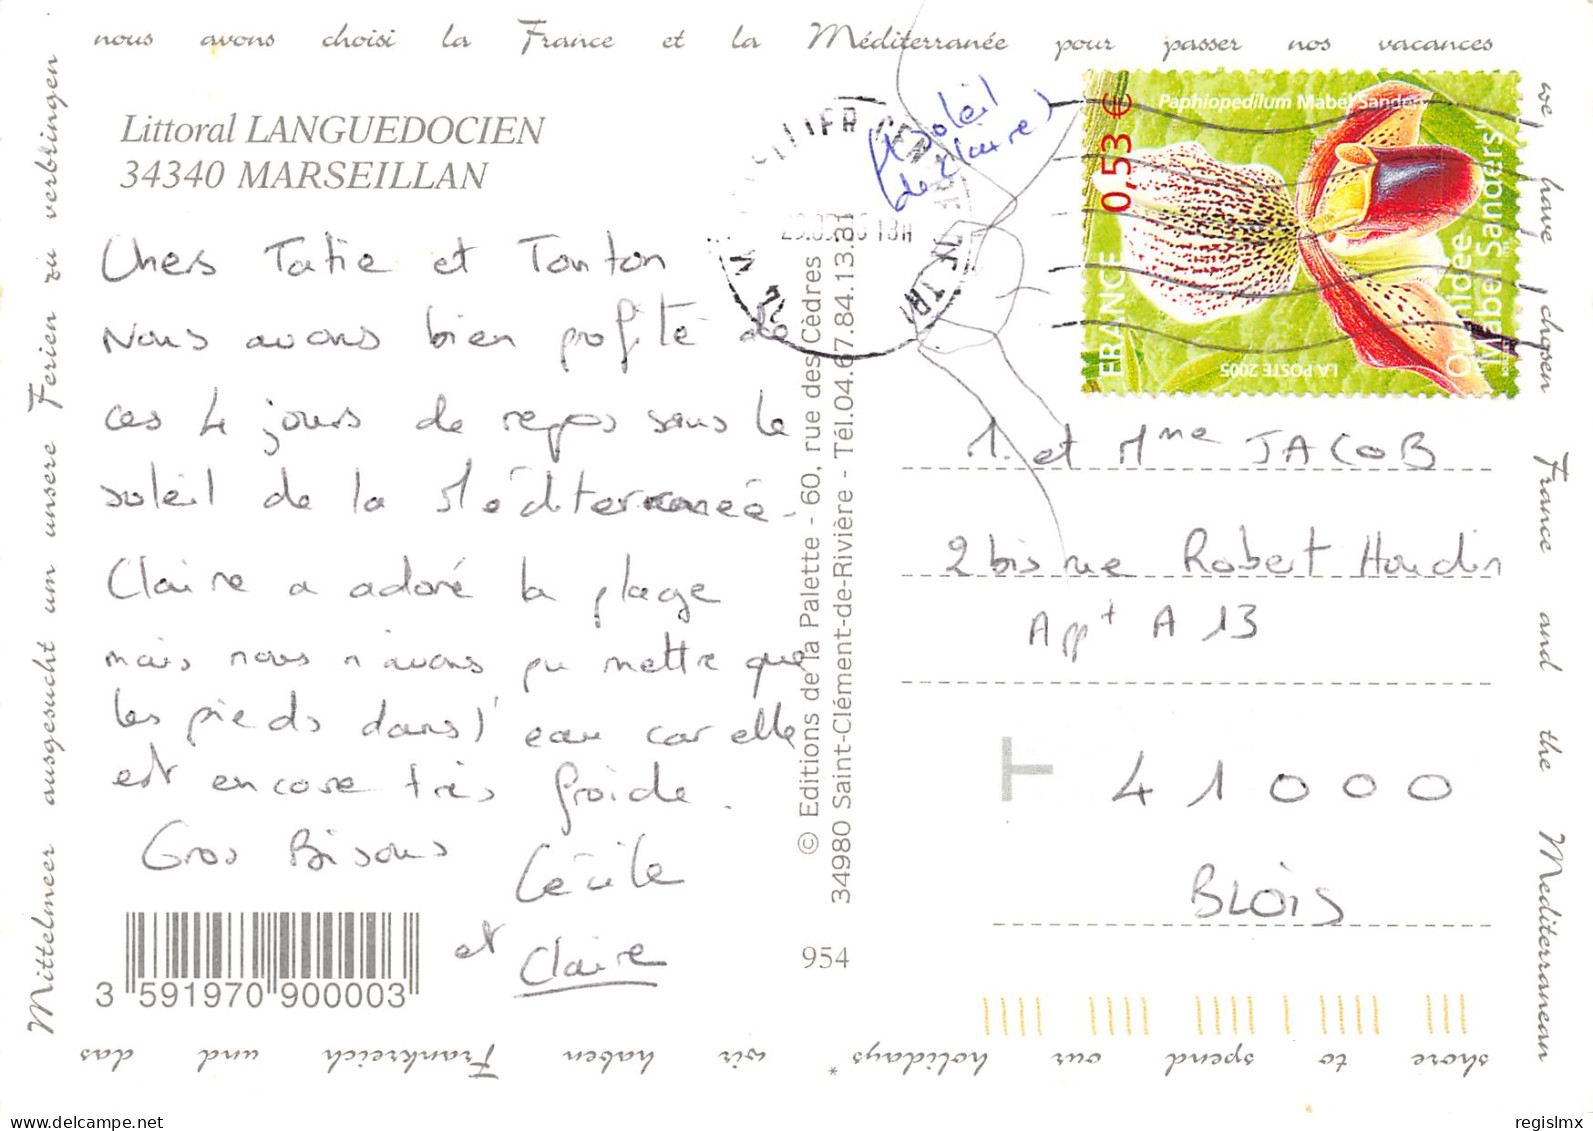 nous avons choisi la France et la Méditerranée pour passer nos vacances
we have chosen France and the Mediterranean
shore to spend our holidays *
wir haben Frankreich und das
Mittelmeer ausgesucht um unsere Ferien zu verbringen
Littoral LANGUEDOCIEN
34340 MARSEILLAN
Chers Tatie et Tonton
Nous avons bien profité de
ces 4 jours de repos sous le
soleil de la Méditerranée.
Claire a adoré la plage
mais nous n'avons pu mettre que
les pieds dans l'eau car elle
est encore très froide.
Gros Bisous
Cécile
et Claire
3 591970 900003
© Editions de la Palette - 60, rue des Cèdres
34980 Saint-Clément-de-Rivière - Tél.04.67.84.13.81
954
soleil
de Claire)
Paphiopedilum Mabel Sanders
0,53 €
FRANCE
LA POSTE 2005
Orchidée
"Mabel Sanders"
M. et Mme JACOB
2 bis rue Robert Houdin
Appt A 13
41000
BLOIS
regislmx